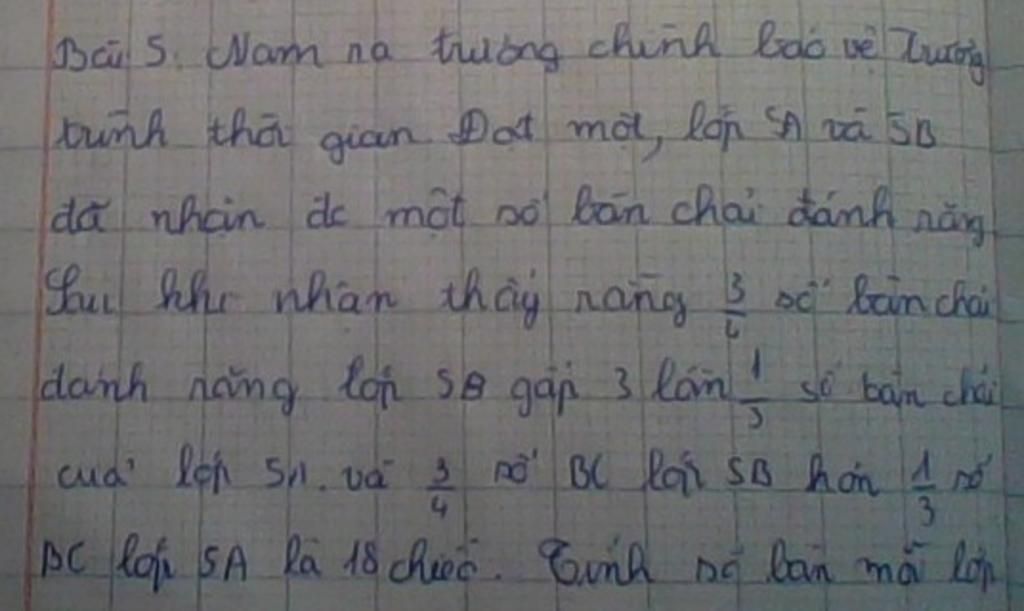 Bài 5. Nam na trường chinh bảo vệ Trường
trình thời gian Đạt một, lớp 5A và 5B
đã nhận đc một số bàn chải đánh răng
Sau khi nhận thấy rằng 3/4 số bàn chải
đánh răng lớp 5B gấp 3 lần 1/3 số bàn chải
của lớp 5A. và 3/4 số BC lớp 5B hơn 1/3 số
BC lớp 5A là 18 chiếc. Tính số bàn mỗi lớp